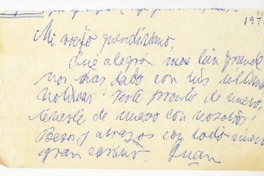 197
Mi viejo queridísimo,
Qué alegría más tan grande
nos has dado con tus últimas
noticias! Verte pronto de nuevo,
tenerte de nuevo con nosotros!
Besos y abrazos con todo nuestro
gran cariño Juan